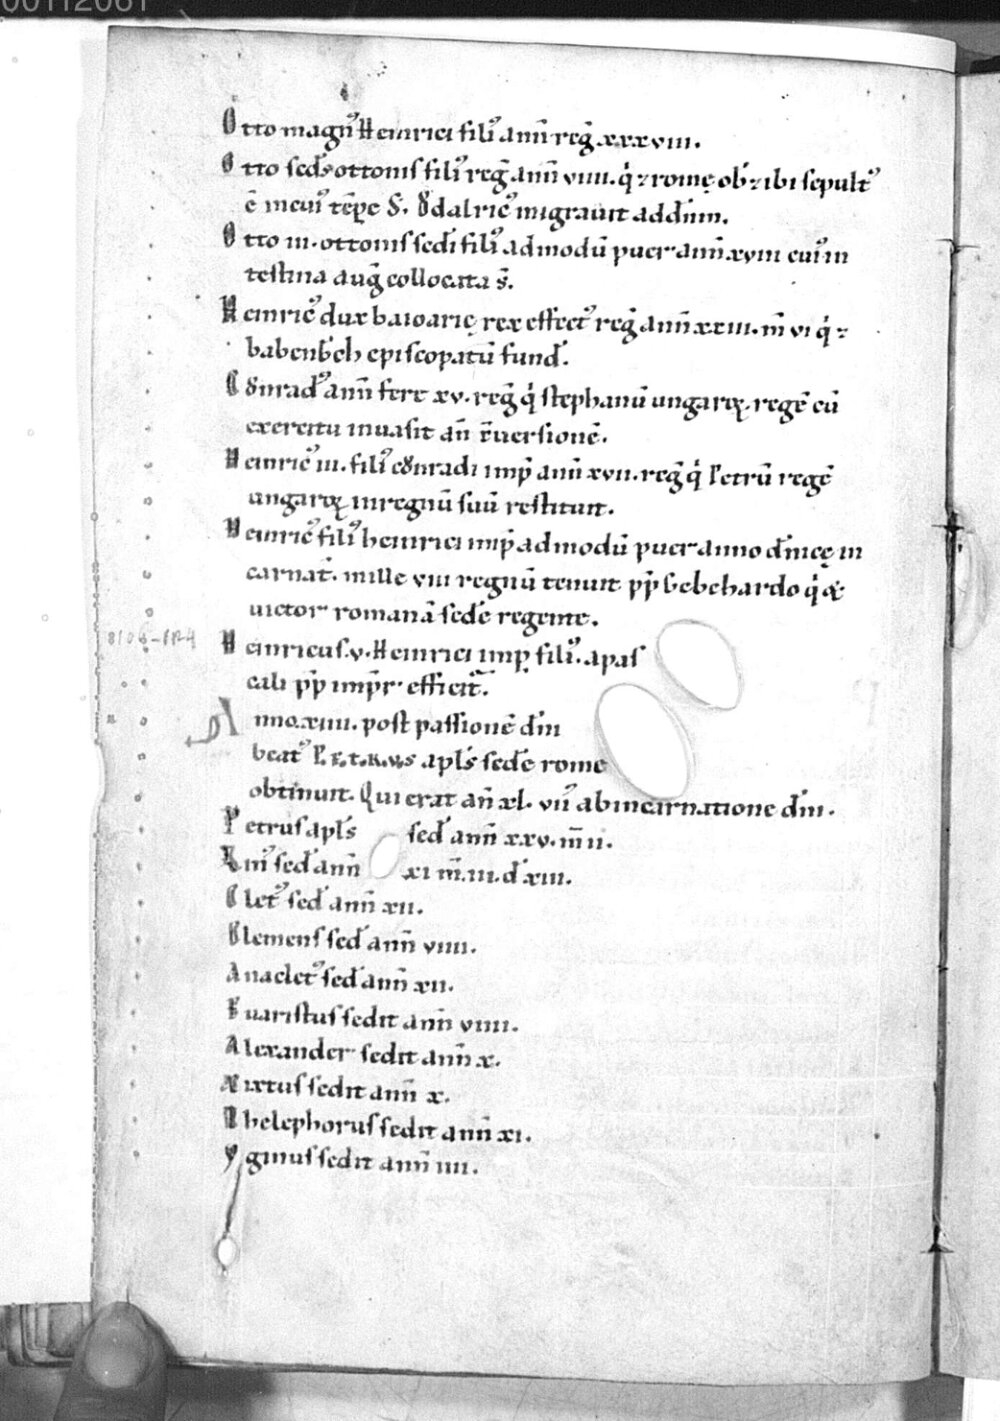 00112061
Otto magn᷒ Heinrici fili᷒ ann̄ reḡ xxxviii.
Otto sed̄s ottonis fili᷒ reḡ ann̄ viiii. q̇ ⁊ romę ob̄ ⁊ ibi sepult᷒
ē incui᷒ tēpe S. Ǒdalric᷒ migrauit addn̄m.
Otto iii. ottonis sed̄i fili᷒ admodū puer ann̄ xviii cui᷒ in
testina auḡ collocata s̄.
Heinric᷒ dux baioarię rex effect᷒ reḡ ann̄ xxiii. m̄ vi q̇ ⁊
babenb̄ch episcopatū fund̄.
Cǒnrad᷒ ann̄ fere xv. reḡ q̇ stephanū ungaroꝝ regē cū
exercitu inuasit an̄ r̄uersionē.
Heinric᷒ iii. fili᷒ cǒnradi imp̄ ann̄ xvii. reḡ q̇ Petrū regē
ungaroꝝ inregnū suū restituit.
Heinric᷒ fili᷒ heinrici imp̄ admodū puer anno dn̄icę in
carnat̄. mille viii regnū tenuit pp̄ Gebehardo q̇ &
uictor romanā sedē regente.
8106-1124
Heinricus.v. Heinrici imp̄ fili᷒. apas
cali pp̄ imp̄r efficit᷒.
Anno.xiiii. post passionē dn̄i
beat᷒ P.e.t.r.v.s apl̄s sedē rome
obtinuit. Qui erat an̄ xl. vii᷒ abincarnatione dn̄i.
Petrus apl̄s sed̄ ann̄ xxv. m̄ ii.
Lin᷒ sed̄ ann̄ xi m̄. iii. d̄ xiii.
Clet᷒ sed̄ ann̄ xii.
Clemens sed̄ ann̄ viiii.
Anaclet᷒ sed̄ ann̄ xii.
Euaristus sedit ann̄ viiii.
Alexander sedit ann̄ x.
Xixtus sedit ann̄ x.
Thelephorus sedit ann̄ xi.
Yginus sedit ann̄ iiii.